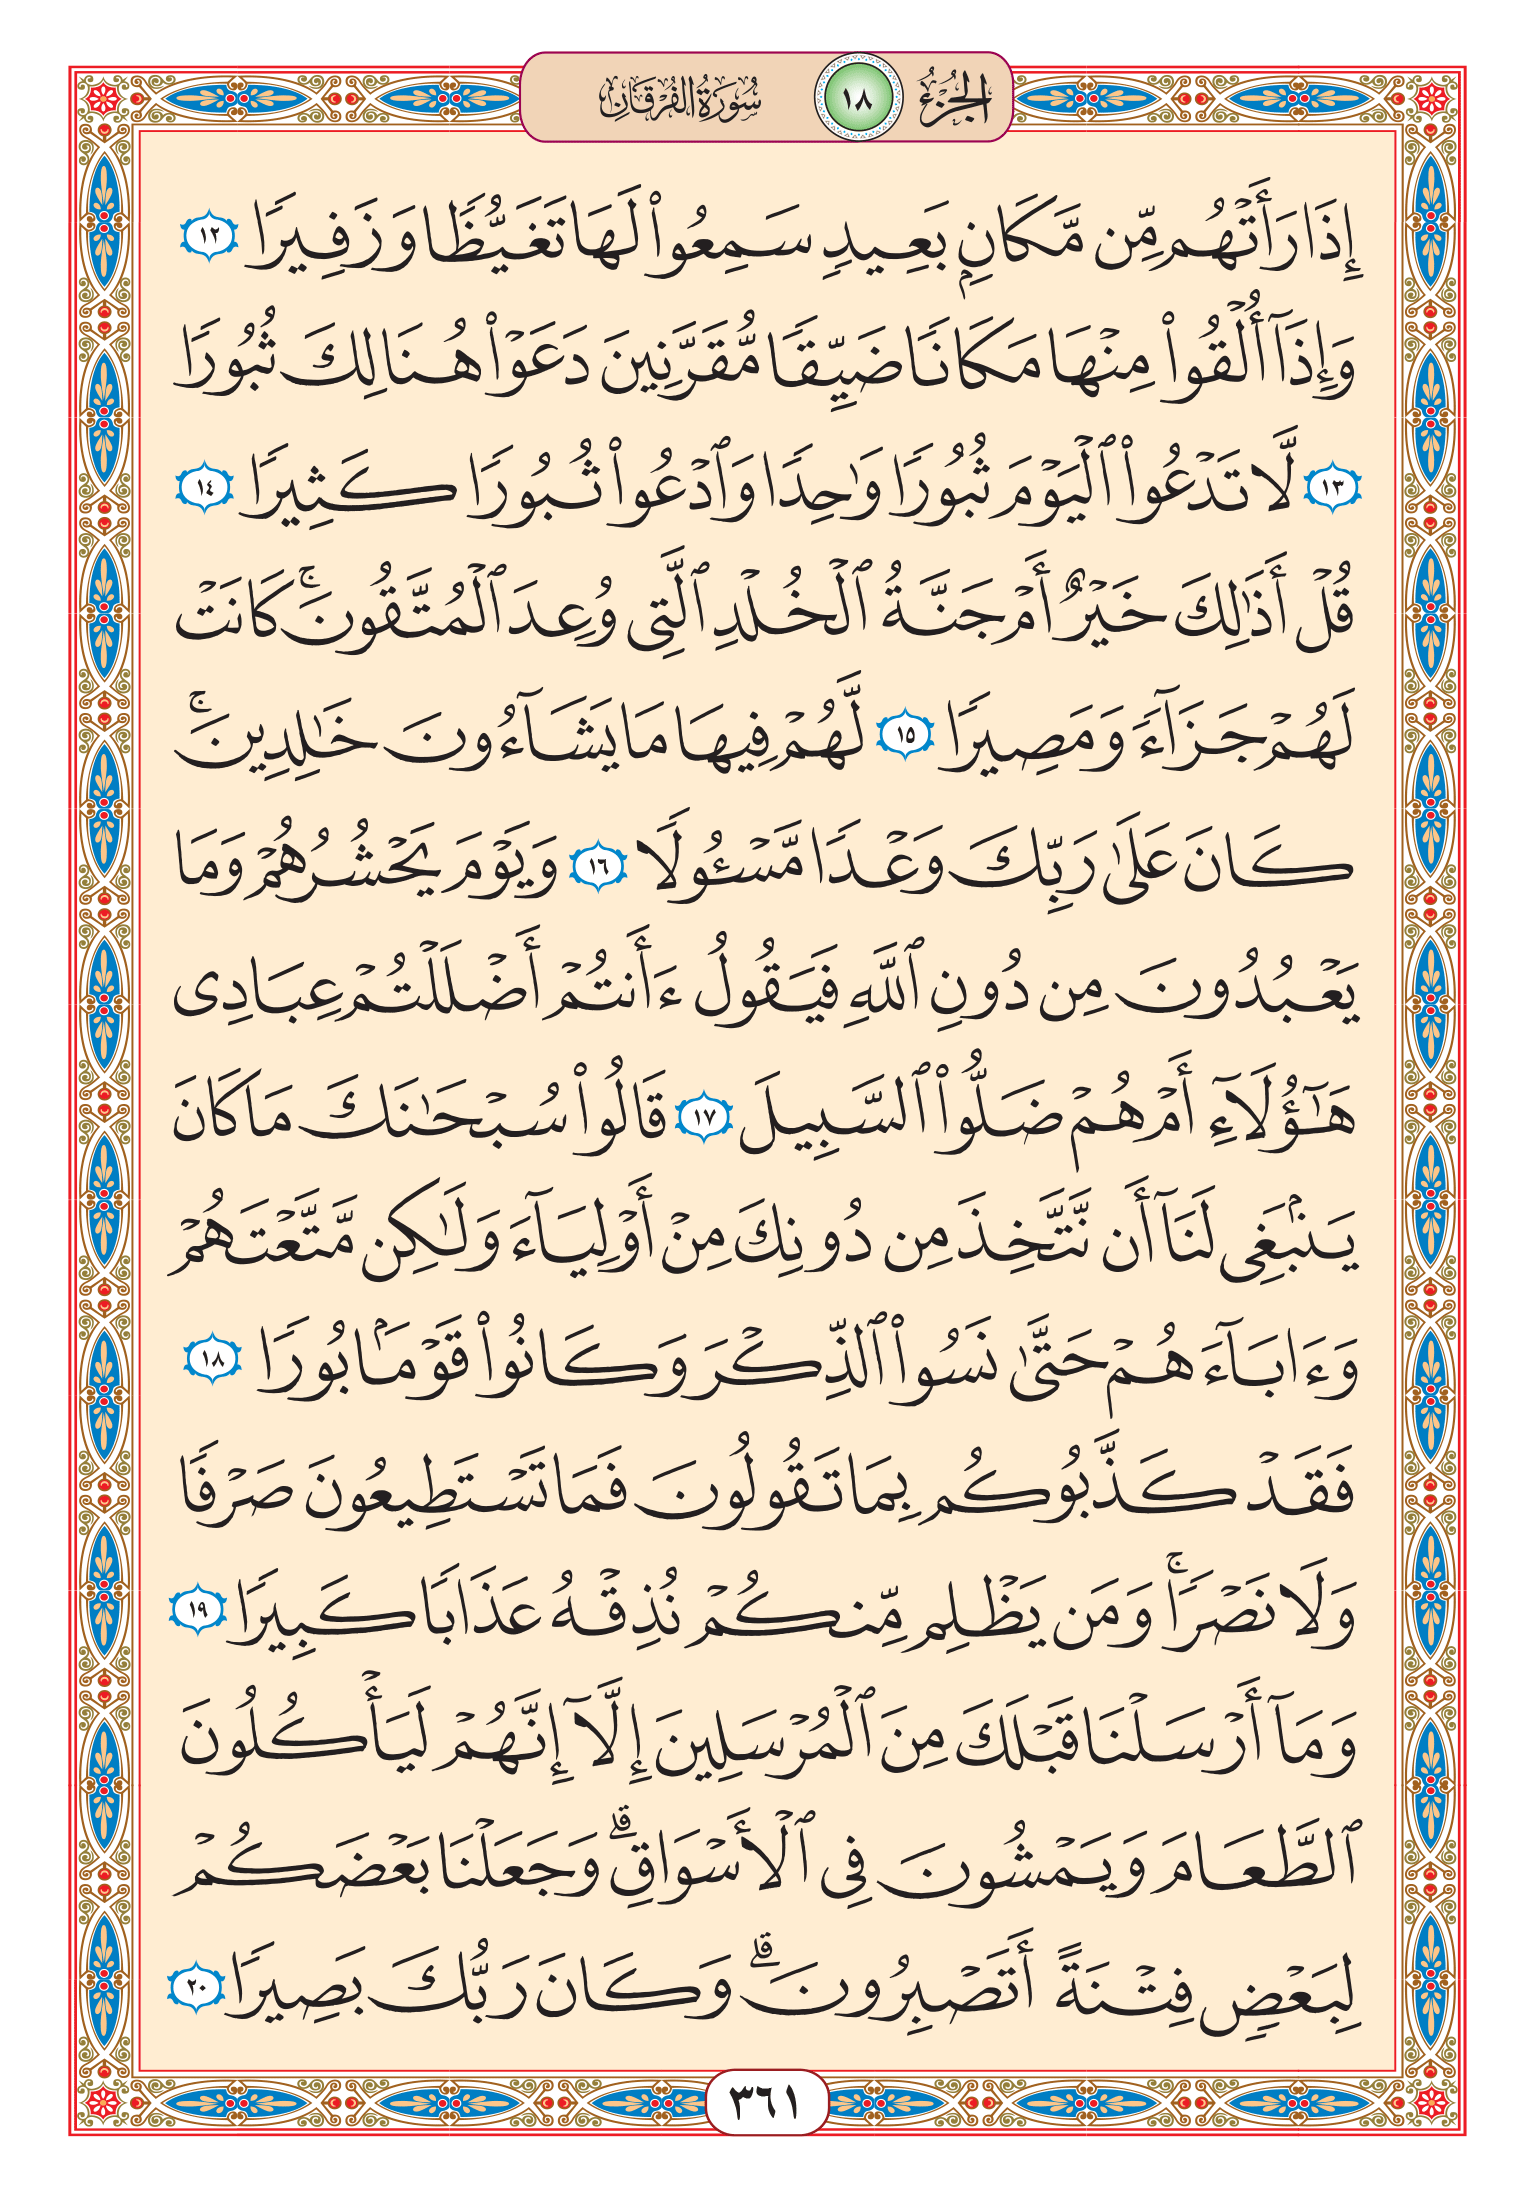 الجزء ١٨ سورة الفرقان
إِذَا رَأَتْهُم مِّن مَّكَانٍۭ بَعِيدٍ سَمِعُوا۟ لَهَا تَغَيُّظًا وَزَفِيرًا ١٢
وَإِذَآ أُلْقُوا۟ مِنْهَا مَكَانًا ضَيِّقًا مُّقَرَّنِينَ دَعَوْا۟ هُنَالِكَ ثُبُورًا
١٣ لَّا تَدْعُوا۟ ٱلْيَوْمَ ثُبُورًا وَٰحِدًا وَٱدْعُوا۟ ثُبُورًا كَثِيرًا ١٤
قُلْ أَذَٰلِكَ خَيْرٌ أَمْ جَنَّةُ ٱلْخُلْدِ ٱلَّتِى وُعِدَ ٱلْمُتَّقُونَ ۚ كَانَتْ
لَهُمْ جَزَآءً وَمَصِيرًا ١٥ لَّهُمْ فِيهَا مَا يَشَآءُونَ خَٰلِدِينَ ۚ
كَانَ عَلَىٰ رَبِّكَ وَعْدًا مَّسْـُٔولًا ١٦ وَيَوْمَ يَحْشُرُهُمْ وَمَا
يَعْبُدُونَ مِن دُونِ ٱللَّهِ فَيَقُولُ ءَأَنتُمْ أَضْلَلْتُمْ عِبَادِى
هَٰٓؤُلَآءِ أَمْ هُمْ ضَلُّوا۟ ٱلسَّبِيلَ ١٧ قَالُوا۟ سُبْحَٰنَكَ مَا كَانَ
يَنۢبَغِى لَنَآ أَن نَّتَّخِذَ مِن دُونِكَ مِنْ أَوْلِيَآءَ وَلَٰكِن مَّتَّعْتَهُمْ
وَءَابَآءَهُمْ حَتَّىٰ نَسُوا۟ ٱلذِّكْرَ وَكَانُوا۟ قَوْمًۢا بُورًا ١٨
فَقَدْ كَذَّبُوكُم بِمَا تَقُولُونَ فَمَا تَسْتَطِيعُونَ صَرْفًا
وَلَا نَصْرًا ۚ وَمَن يَظْلِم مِّنكُمْ نُذِقْهُ عَذَابًا كَبِيرًا ١٩
وَمَآ أَرْسَلْنَا قَبْلَكَ مِنَ ٱلْمُرْسَلِينَ إِلَّآ إِنَّهُمْ لَيَأْكُلُونَ
ٱلطَّعَامَ وَيَمْشُونَ فِى ٱلْأَسْوَاقِ ۗ وَجَعَلْنَا بَعْضَكُمْ
لِبَعْضٍ فِتْنَةً أَتَصْبِرُونَ ۗ وَكَانَ رَبُّكَ بَصِيرًا ٢٠
٣٦١